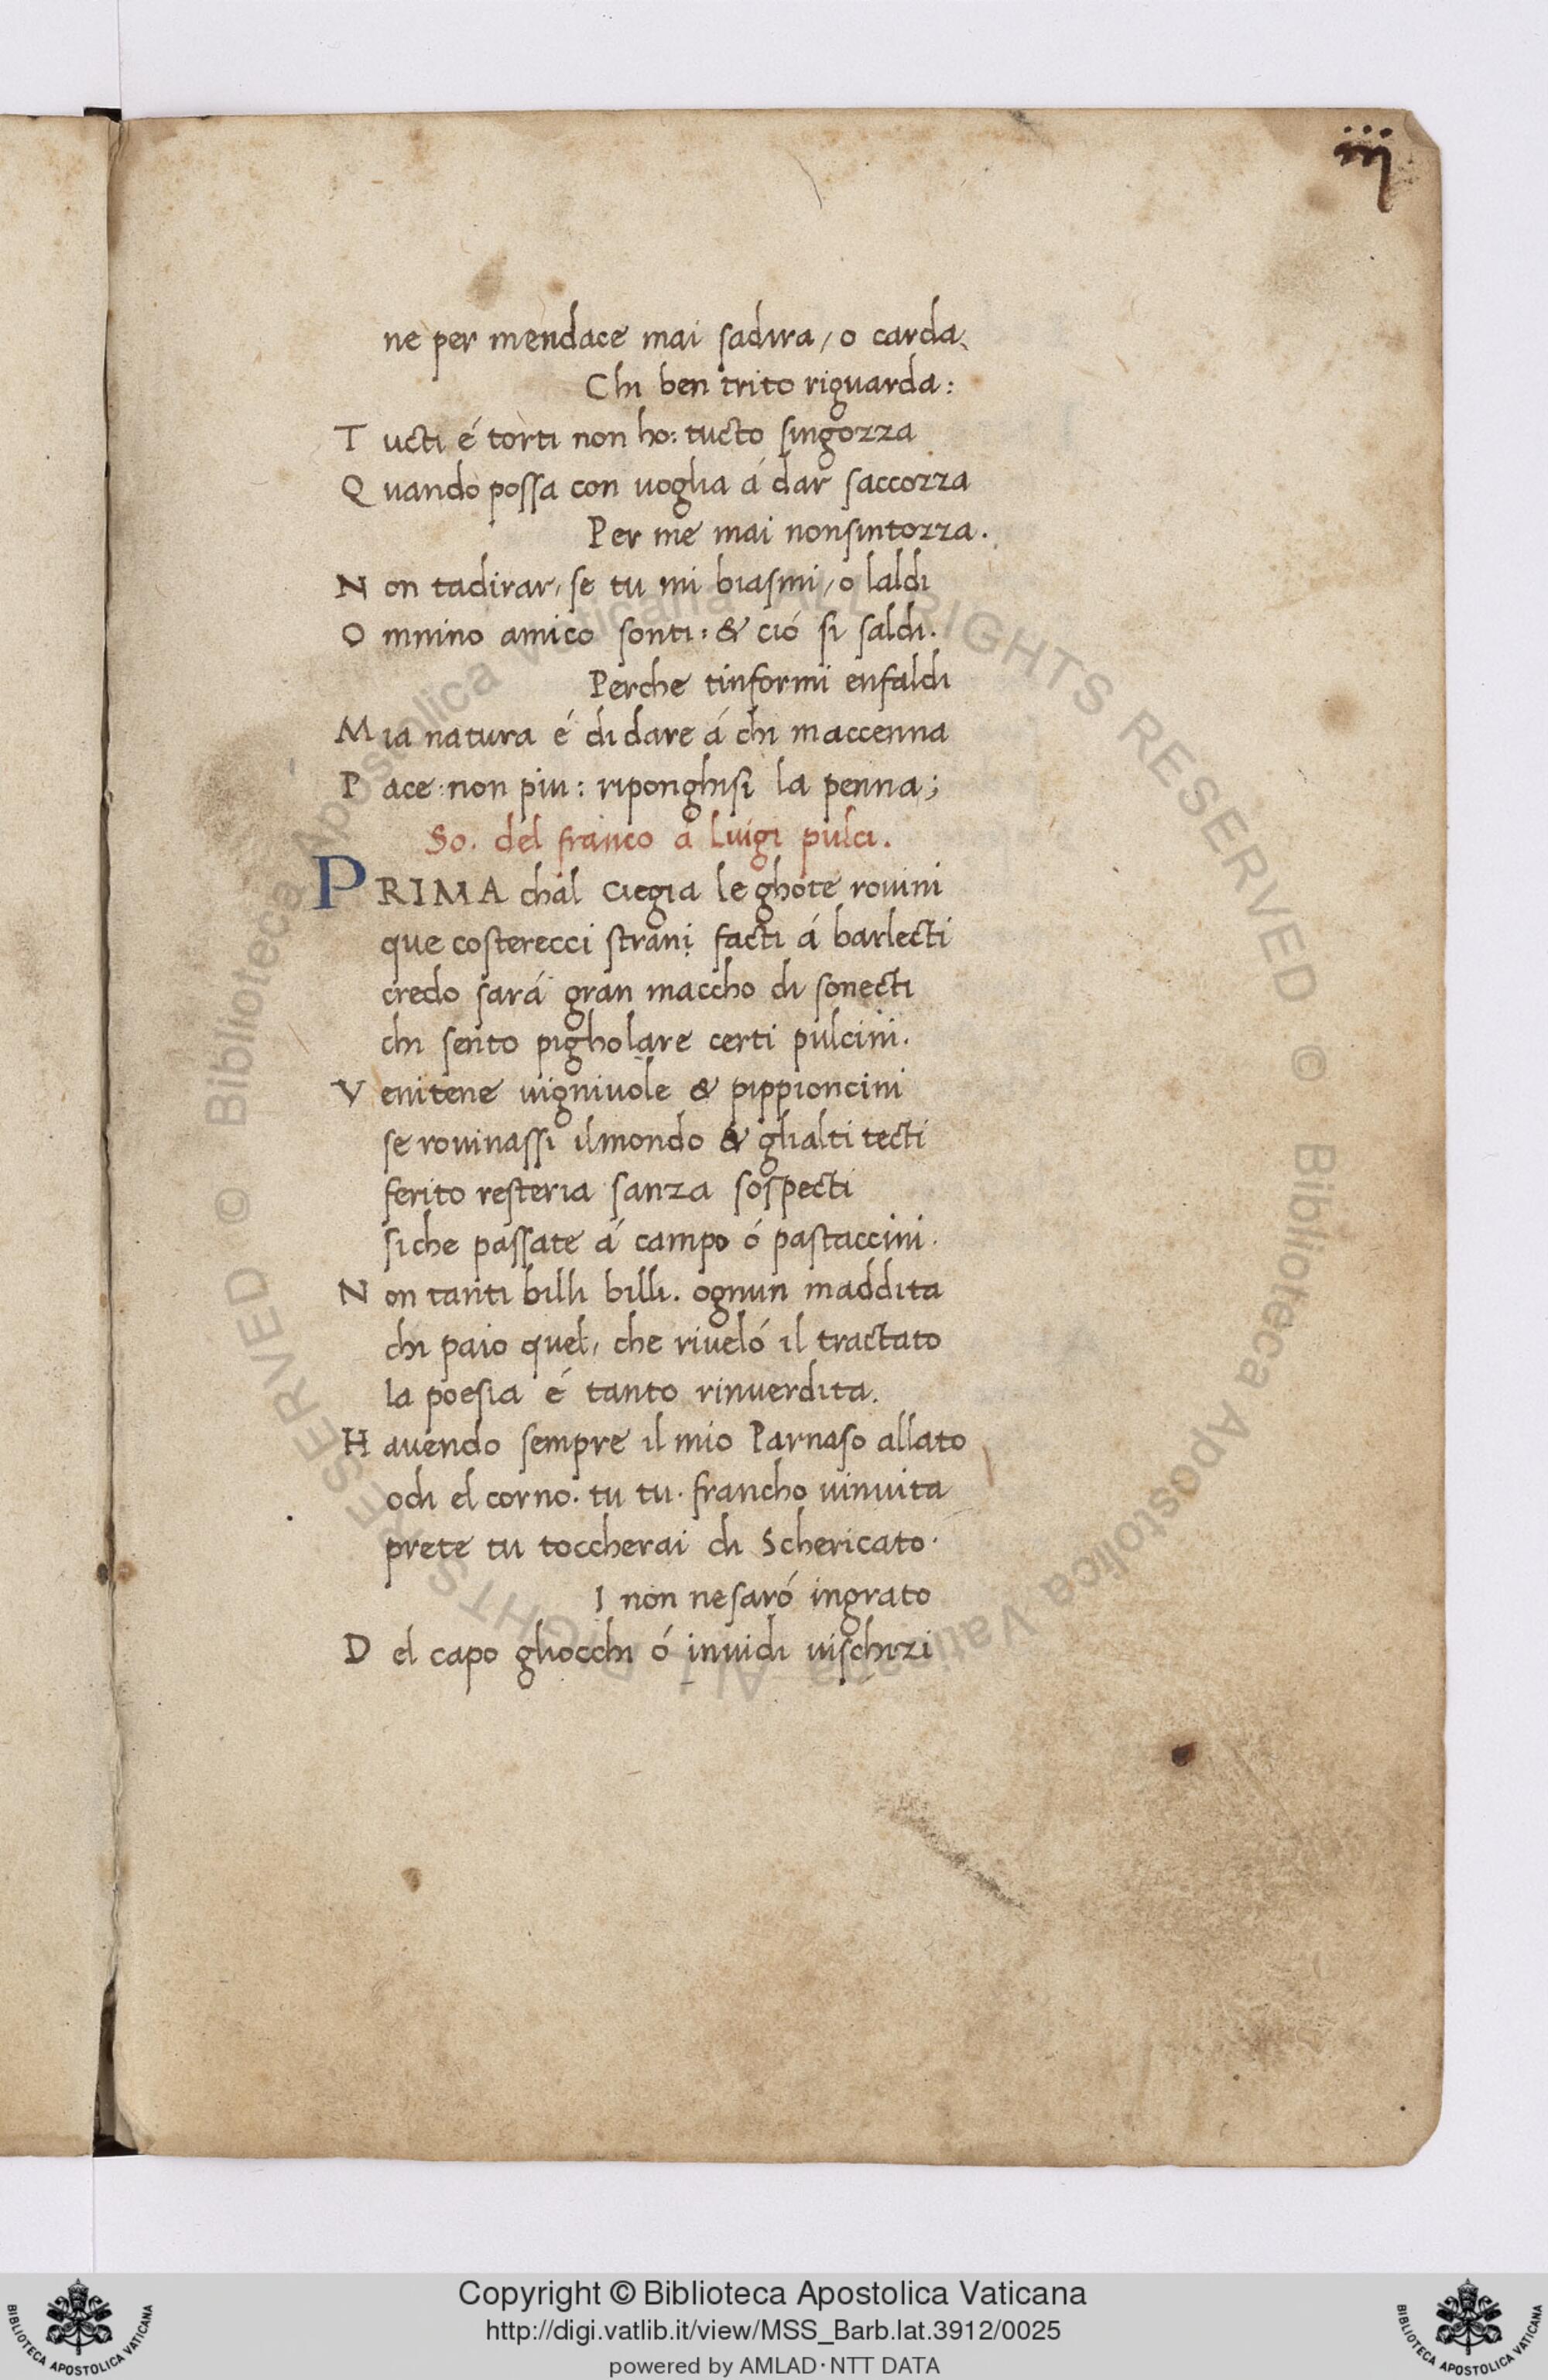 iij
ne per mendace mai sadira / o carda.
Chi ben trito riguarda:
Tucti é torti non ho: tucto singozza
Quando possa con uoglia á dar saccozza
Per me mai nonsintozza.
Non tadirar, se tu mi biasmi, o laldi
Omnino amico sonti: & ció si saldi.
Perche tinformi enfaldi
Mia natura é di dare á chi maccenna
Pace: non piu: riponghisi la penna;
So. del franco a Luigi pulci.
PRIMA chal Ciegia le ghote rouini
que costerecci strani facti á barlecti
credo sará gran maccho di sonecti
chi sento pigholare certi pulcini.
Venitene uigniuole & pippioncini
se rouinassi ilmondo & glialti tecti
ferito resteria sanza sospecti
siche passate á campo ó pastaccini.
Non tanti billi billi. ognun maddita
chi paio quel, che riueló il tractato
la poesia é tanto rinuerdita.
Hauendo sempre il mio Parnaso allato
odi el corno. tu tu. francho uinuita
prete tu toccherai di Schericato.
I non nesaró ingrato
Del capo gliocchi ó inuidi uischizi
© Biblioteca Apostolica Vaticana ALL RIGHTS RESERVED © Biblioteca Apostolica Vaticana ALL RIGHTS RESERVED
Copyright © Biblioteca Apostolica Vaticana
http://digi.vatlib.it/view/MSS_Barb.lat.3912/0025
powered by AMLAD·NTT DATA
BIBLIOTECA APOSTOLICA VATICANA
BIBLIOTECA APOSTOLICA VATICANA